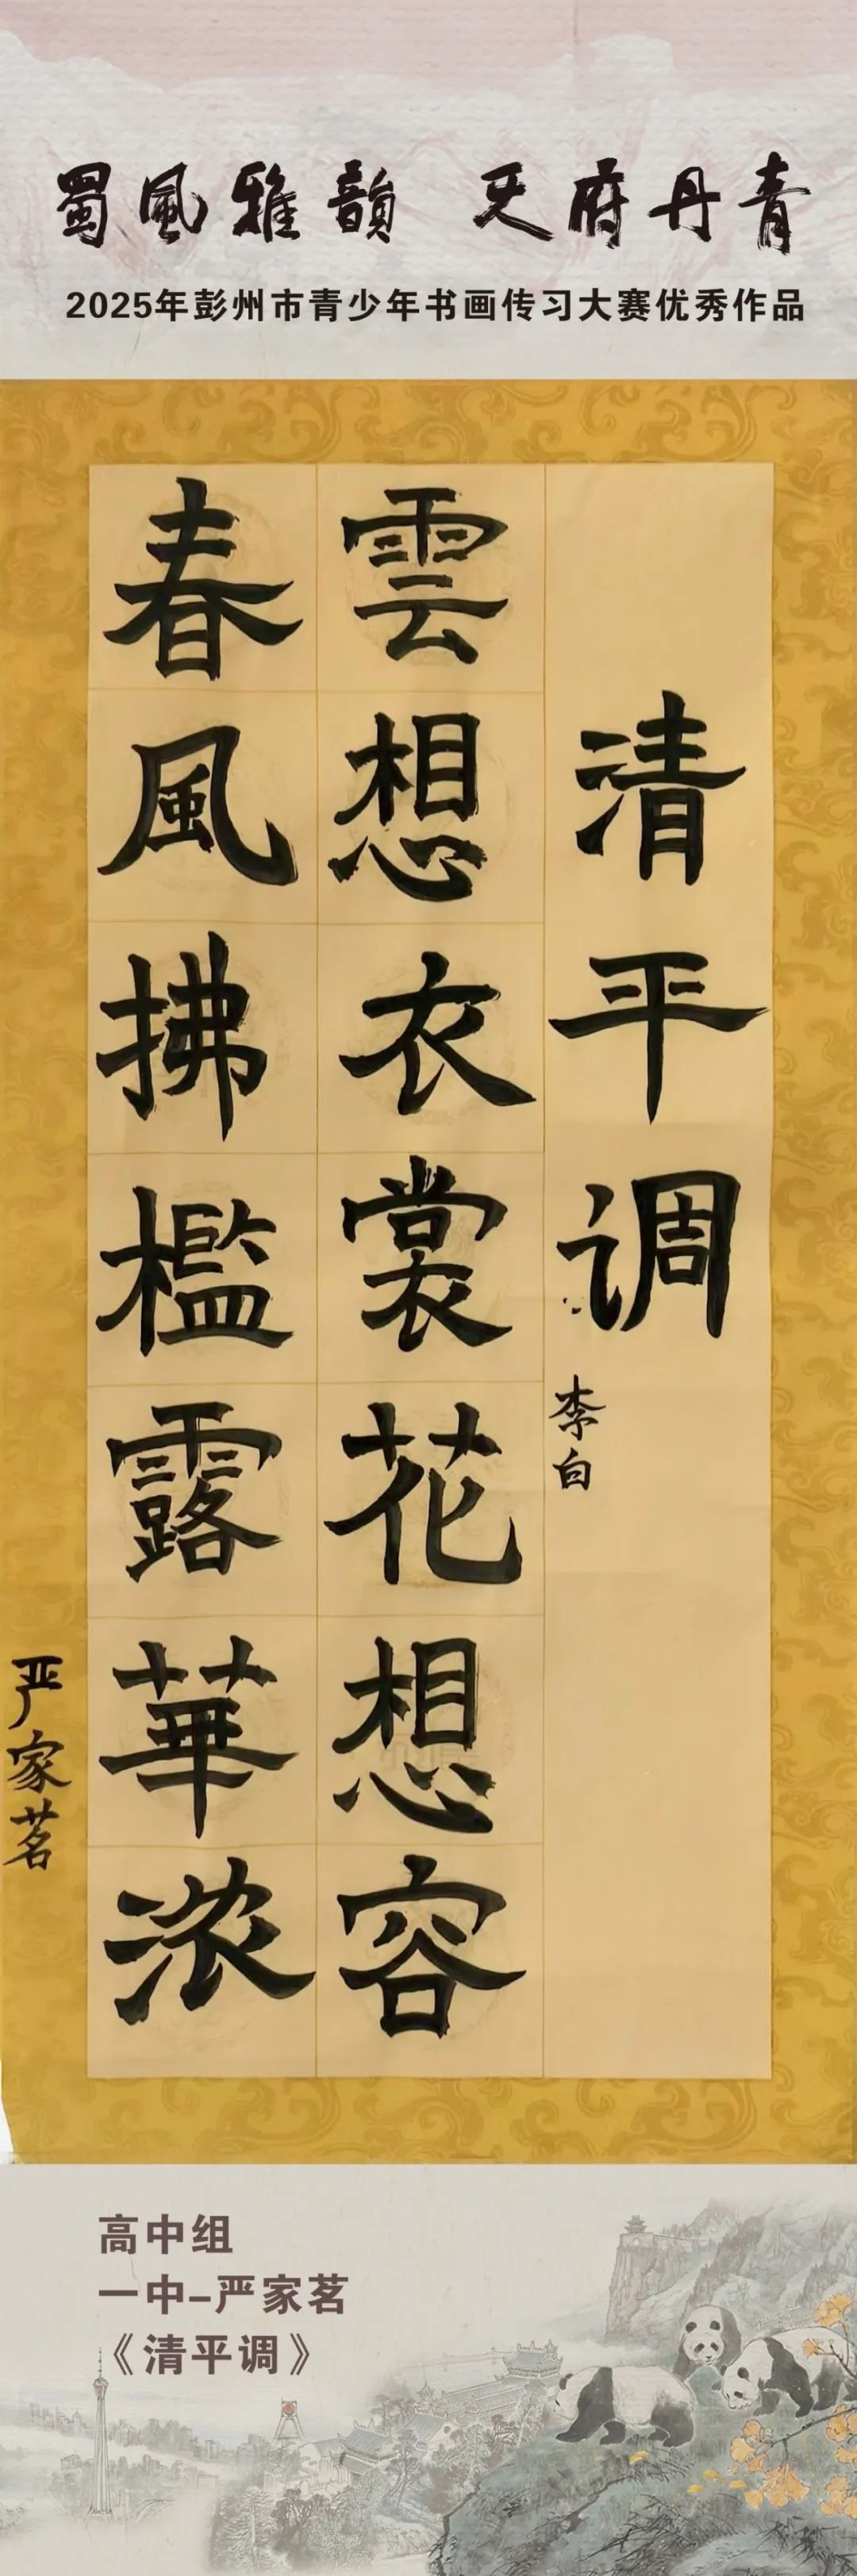 蜀風雅韻 天府丹青
2025年彭州市青少年书画传习大赛优秀作品
清平调
李白
雲想衣裳花想容
春風拂檻露華浓
严家茗
高中组
一中-严家茗
《清平调》